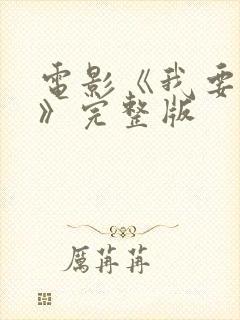 電影《我要
》完整版
厲苒苒